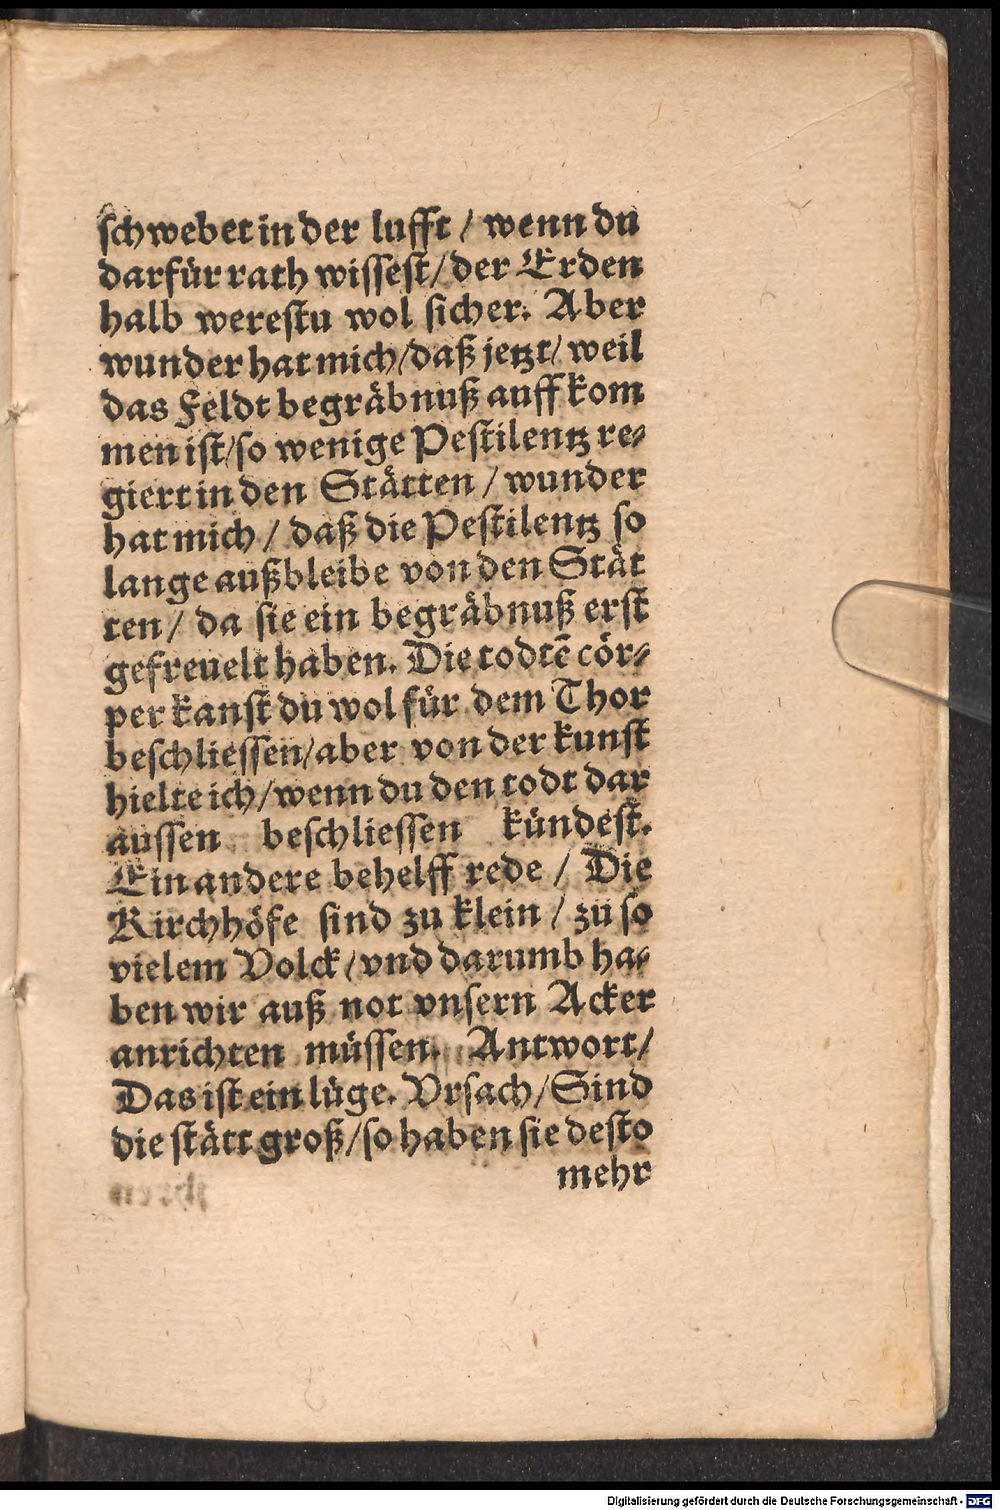 schwebet in der lufft / wenn du
darfür rath wissest / der Erden
halb werestu wol sicher. Aber
wunder hat mich / daß jetzt / weil
das Feldt begräbnuß auff kom
men ist / so wenige Pestilentz re⸗
giert in den Stätten / wunder
hat mich / daß die Pestilentz so
lange außbleibe von den Stät
ten / da sie ein begräbnuß erst
gefreuelt haben. Die todtẽ cör⸗
per kanst du wol für dem Thor
beschliessen / aber von der kunst
hielte ich / wenn du den todt dar
aussen beschliessen kündest.
Ein andere behelff rede / Die
Kirchhöfe sind zu klein / zu so
vielem Volck / vnd darumb ha⸗
ben wir auß not vnsern Acker
anrichten müssen. Antwort /
Das ist ein lüge. Vrsach / Sind
die stätt groß / so haben sie desto
mehr
Digitalisierung gefördert durch die Deutsche Forschungsgemeinschaft - DFG